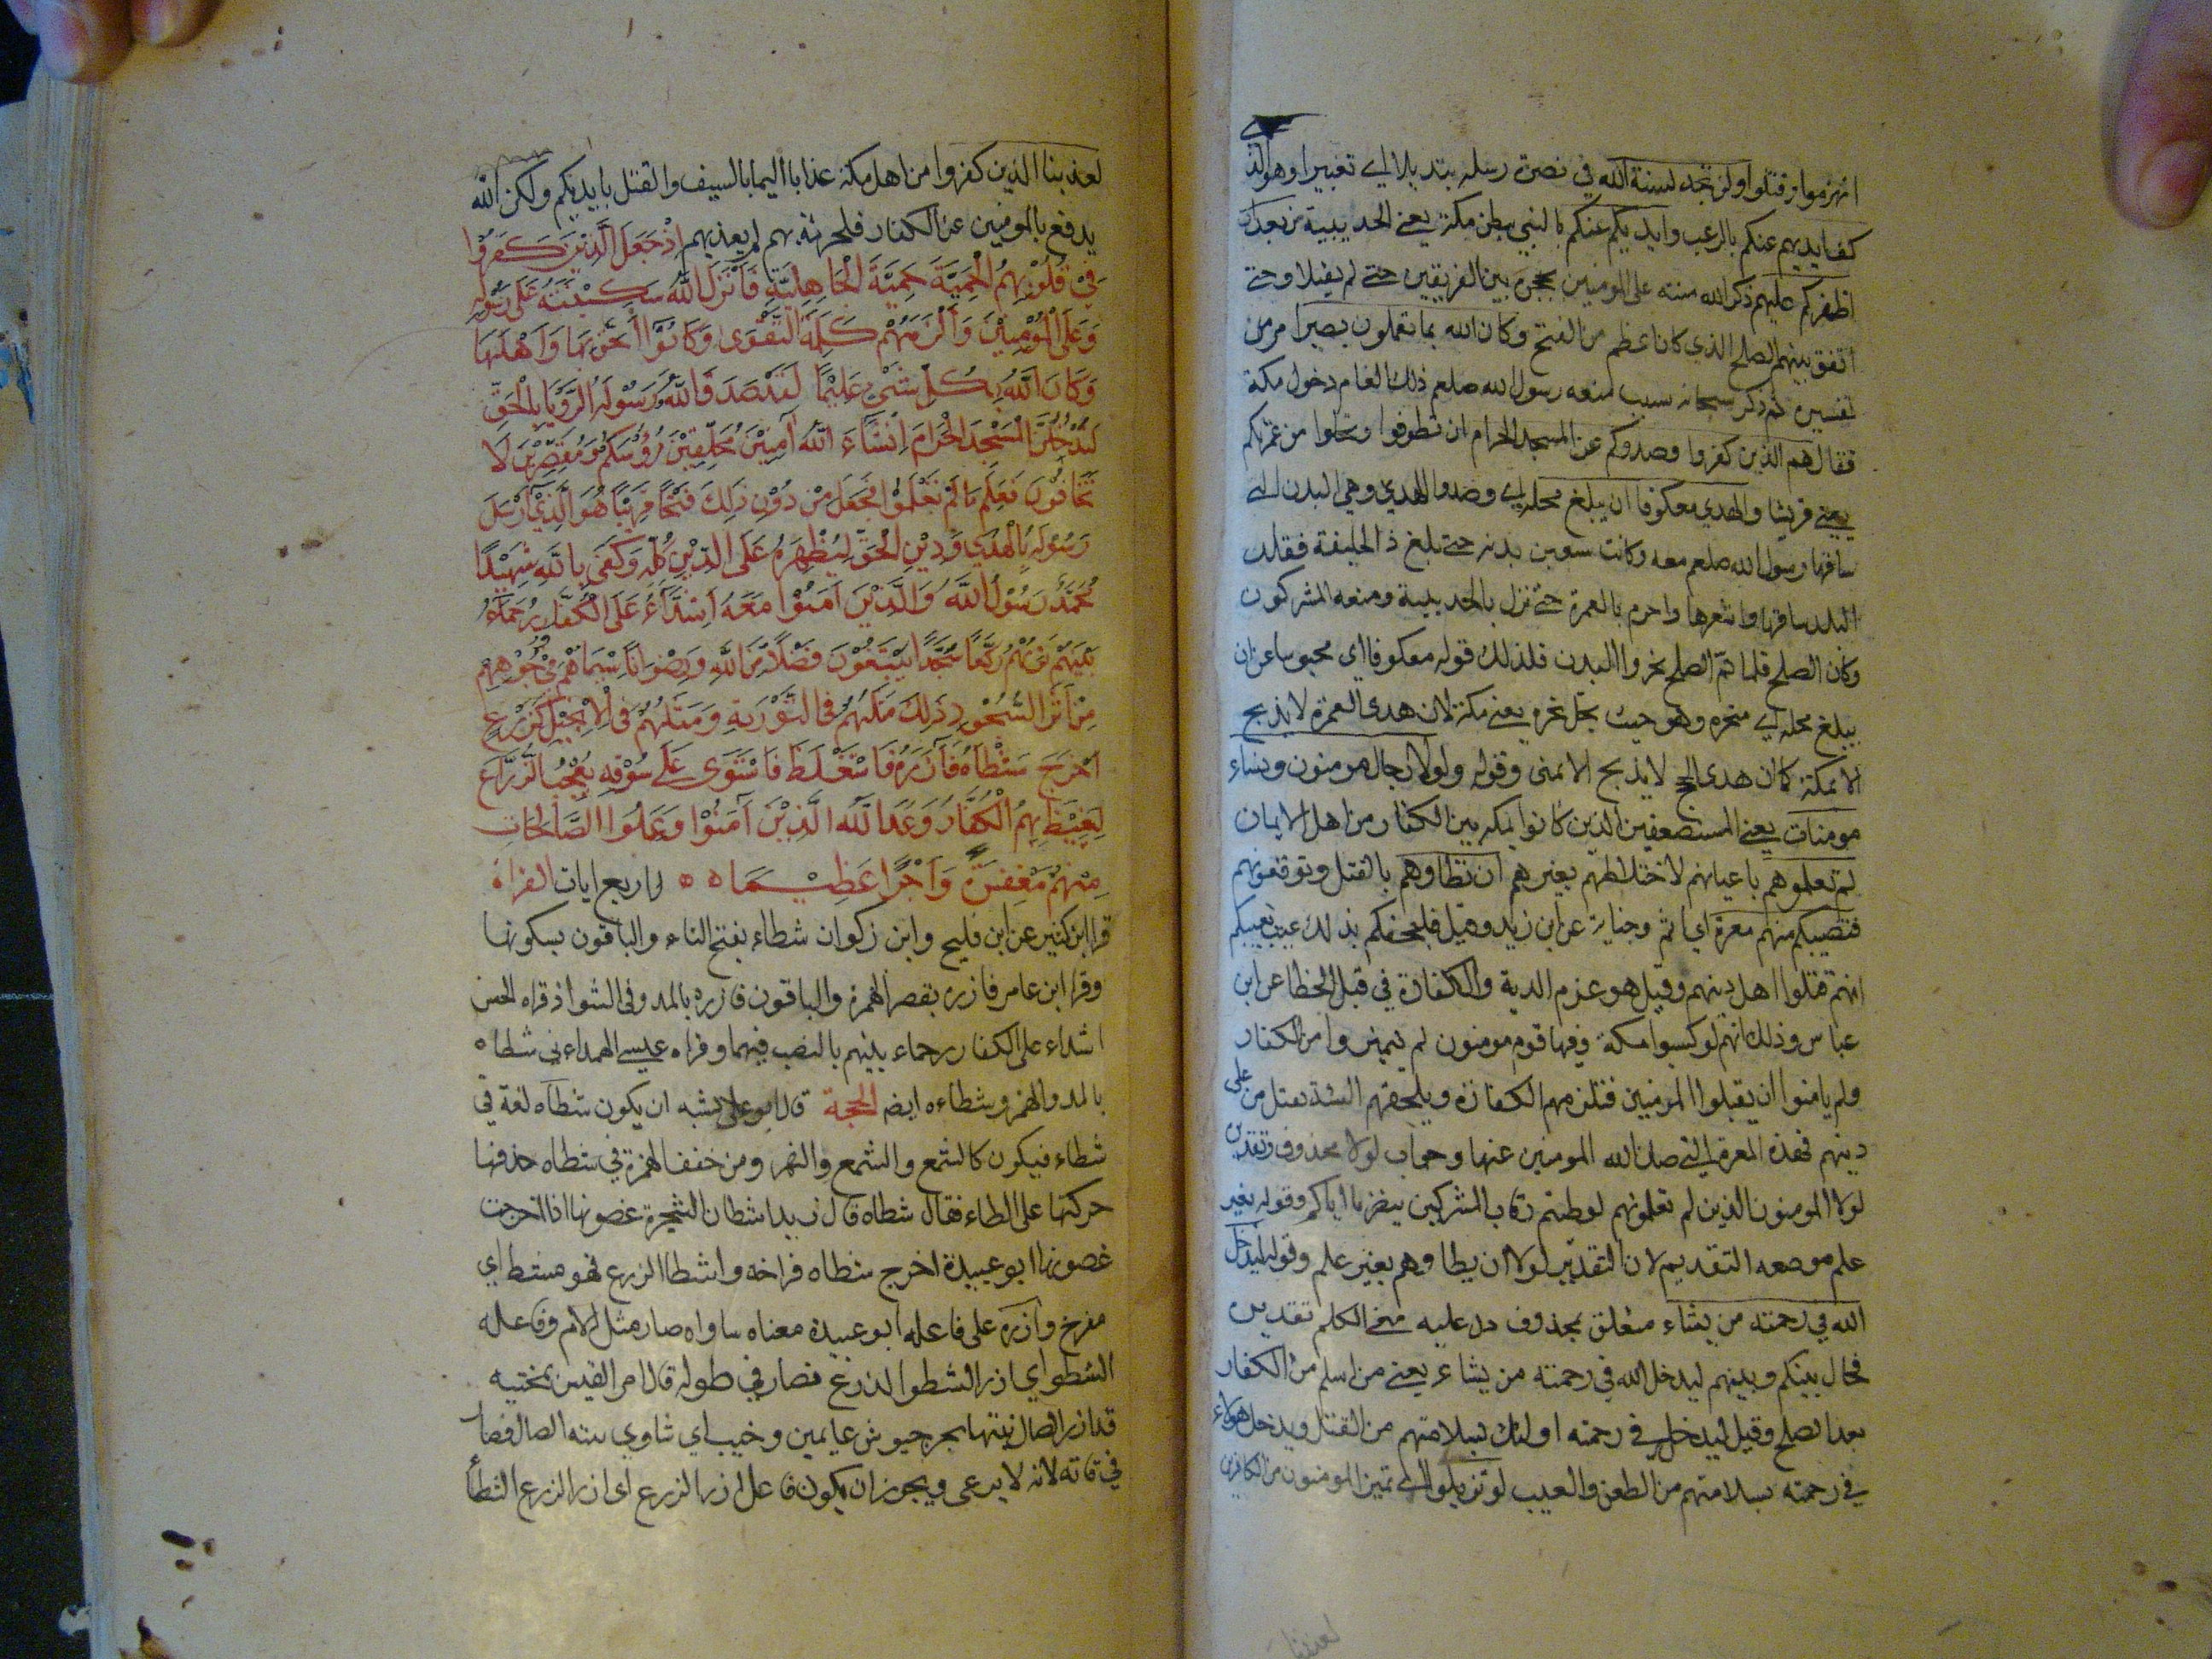 انهزموا وقتلوا ولن تجد لسنة الله في نصرة رسله تبديلا اي تغييرا وهو الذي
كف ايديهم عنكم بالرعب وايديكم عنكم بالنهي ببطن مكة يعني الحديبية من بعد ان
اظفركم عليهم ذكر الله منته على المومنين بحجزه بين الفريقين حتى لم يقتتلا وحتى
اتفق بينهم الصلح الذي كان اعظم من الفتح وكان الله بما تعملون بصيرا مر من
تفسيره ثم ذكر سبحانه سبب منعه رسول الله صلعم ذلك العام دخول مكة
فقال هم الذين كفروا وصدوكم عن المسجد الحرام ان تطوفوا وتحلوا من عمرتكم
يعني قريشا والهدي معكوفا ان يبلغ محله اي وصدوا الهدي وهي البدن التي
ساقها رسول الله صلعم معه وكانت سبعين بدنة حتى بلغ ذا الحليفة فقلد
البدن ساقها واشعرها واحرم بالعمرة حتى نزل بالحديبية ومنعه المشركون
وكان الصلح فلما تم الصلح نحروا البدن فلذلك قوله معكوفا اي محبوسا عن ان
يبلغ محله اي منحره وهو حيث يحل نحره يعني مكة لان هدي العمرة لا يذبح
الا بمكة كما ان هدي الحج لا يذبح الا بمنى وقوله ولولا رجال مومنون ونساء
مومنات يعني المستضعفين الذين كانوا بمكة بين الكفار من اهل الايمان
لم تعلموهم باعيانهم لاختلاطهم بغيرهم ان تطاوهم بالقتل وتوقعونهم
فتصيبكم منهم معرة اي اثم وجناية عن ابن زيد وقيل فلحقكم بذلك عيب يعيبكم
انهم قتلوا اهل دينهم وقيل هو غرم الدية والكفارة في قتل الخطا عن ابن
عباس وذلك انهم لو كبسوا مكة وفيها قوم مومنون لم يتميزوا من الكفار
ولم يامنوا ان يقتلوا المومنين فتلزمهم الكفارة ويلحقهم السئة بقتل من على
دينهم فهذه المعرة التي صان الله المومنين عنها وجواب لولا محذوف وتقديره
لولا المومنون الذين لم تعلمونهم لوطئتم رقاب المشركين بنصرنا اياكم وقوله بغير
علم موضعه التقديم لان التقدير لولا ان يطاوهم بغير علم وقوله ليدخل
الله في رحمته من يشاء متعلق بمحذوف دل عليه معنى الكلم تقديره
فحال بينكم وبينهم ليدخل الله في رحمته من يشاء يعني من اسلم من الكفار
بعد الصلح وقيل ليدخل في رحمته اولئك بسلامتهم من القتل ويدخل هولاء
في رحمته بسلامتهم من الطعن والعيب لو تزيلوا اي تميز المومنون من الكافرين
لعذبنا
لعذبنا الذين كفروا من اهل مكة عذابا اليما بالسيف والقتل بايديكم ولكن الله
يدفع بالمومنين عن الكفار فلحرمتهم لم يعذبهم اذ جعل الذين كفروا
في قلوبهم الحمية حمية الجاهلية فانزل الله سكينته على رسوله
وعلى المومنين والزمهم كلمة التقوى وكانوا احق بها واهلها
وكان الله بكل شيء عليما لقد صدق الله رسوله الرؤيا بالحق
لتدخلن المسجد الحرام ان شاء الله آمنين محلقين رؤسكم ومقصرين لا
تخافون فعلم ما لم تعلموا فجعل من دون ذلك فتحا قريبا هو الذي ارسل
رسوله بالهدى ودين الحق ليظهره على الدين كله وكفى بالله شهيدا
محمد رسول الله والذين آمنوا معه اشداء على الكفار رحماء
بينهم تريهم ركعا سجدا يبتغون فضلا من الله ورضوانا سيماهم في وجوههم
من اثر السجود ذلك مثلهم في التورية ومثلهم في الانجيل كزرع
اخرج شطاه فآزره فاستغلظ فاستوى على سوقه يعجب الزراع
ليغيظ بهم الكفار وعد الله الذين آمنوا وعملوا الصالحات
منهم مغفرة واجرا عظيما اربع ايات القراة
قرا ابن كثير عن ابن فليح وابن زكوان شطاه بفتح الطاء والباقون بسكونها
وقرا ابن عامر فازره بقصر الهمزة والباقون فازره بالمد وفي الشواذ قراه الحسن
اشداء على الكفار رحماء بينهم بالنصب فيهما وقراه عيسى الهمداني شطاه
بالمد والهمز وشطاءه ايضا الحجة قال ابو علي يشبه ان يكون شطاه لغة في
شطاء فيكون كالشمع والشمع والنهر ومن خفف الهمزة في شطاه حذفها
حركتها على الطاء فقال شطاه قال ابو زيد اشطات الشجرة غصونها اذا اخرجت
غصونها ابو عبيدة اخرج شطاه فراخه واشطا الزرع فهو مشطئ اي
مفرخ وازره على فاعله ابو عبيدة معناه ساواه صار مثل الام وفاعله
الشطو اي ازر الشطو الزرع فصار في طوله قال امر القيس بمحنية
قد ازر الضال نبتها مجر جيوش غانمين وخيب اي ساوى نبته الضال فصار
في قامته لانه لا يرعى ويجوز ان يكون فاعل ازر الزرع اي ازر الزرع الشطأ